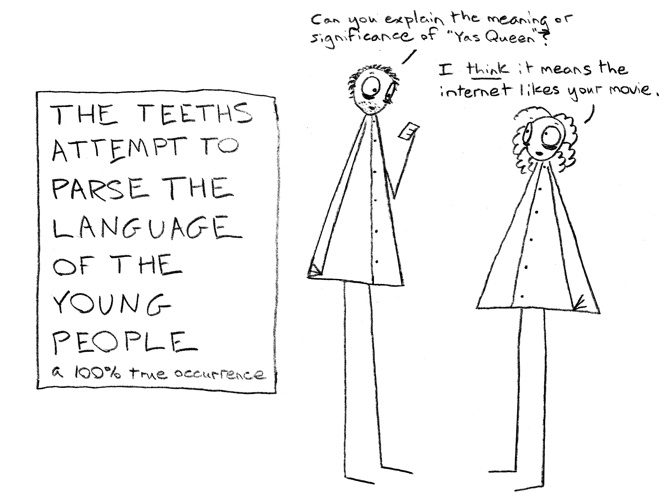 Can you explain the meaning or
significance of "Yas Queen"?
I think it means the
internet likes your movie.
THE TEETHS
ATTEMPT TO
PARSE THE
LANGUAGE
OF THE
YOUNG
PEOPLE
a 100% true occurrence